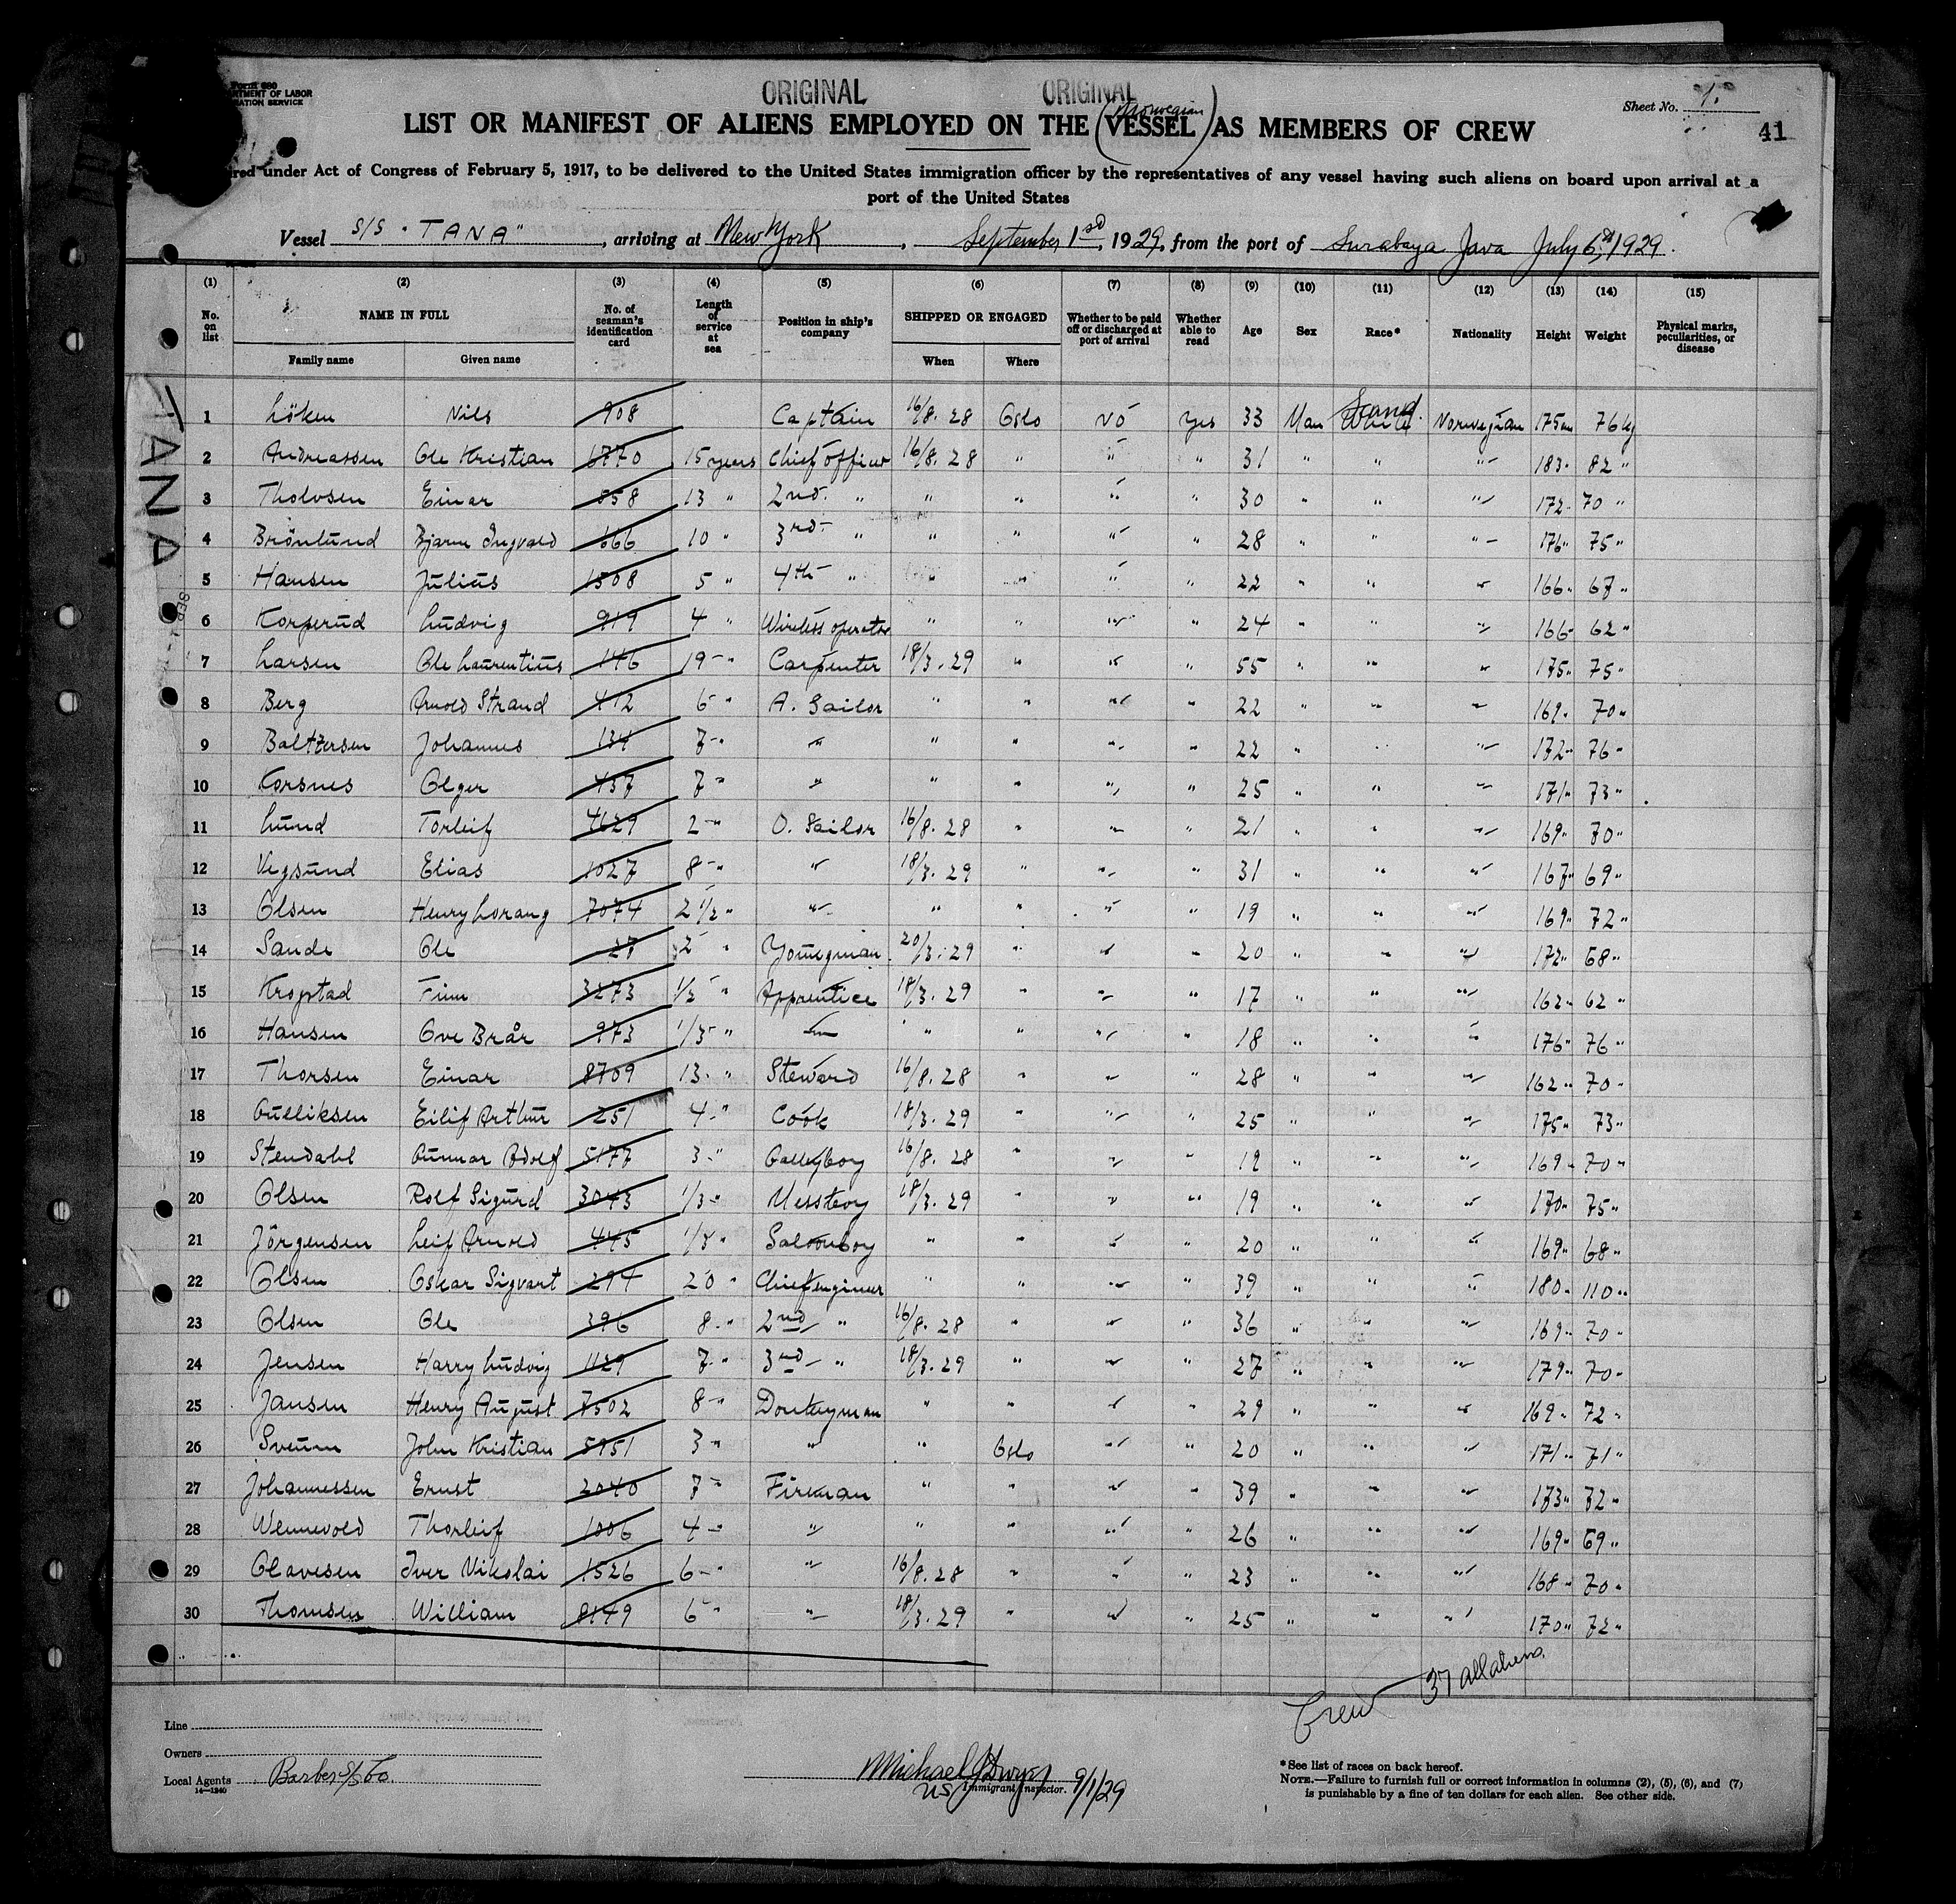 Form 680
ARTMENT OF LABOR
RATION SERVICE
ORIGINAL ORIGINAL
Sheet No. 1.
41
(Norwegian)
LIST OR MANIFEST OF ALIENS EMPLOYED ON THE VESSEL AS MEMBERS OF CREW
red under Act of Congress of February 5, 1917, to be delivered to the United States immigration officer by the representatives of any vessel having such aliens on board upon arrival at a
port of the United States
Vessel S/S "TANA", arriving at New York, September 1sd, 1929, from the port of Surabaya Java July 6th, 1929.
(1) (2) (3) (4) (5) (6) (7) (8) (9) (10) (11) (12) (13) (14) (15)
No. on list NAME IN FULL No. of seaman's identification card Length of service at sea Position in ship's company SHIPPED OR ENGAGED Whether to be paid off or discharged at port of arrival Whether able to read Age Sex Race* Nationality Height Weight Physical marks, peculiarities, or disease
Family name Given name When Where
TANA
1 Löken Nils 908 Captain 16/8. 28 Oslo No Yes 33 Man Scand. White Norwegian 175cm 76kg
2 Andreassen Ole Kristian 6770 15 years Chief Officer 16/8. 28 " " " 31 " " " 183 " 82 "
3 Tholvsen Einar 558 13 " 2nd. " " " " " 30 " " " 172 " 70 "
4 Brönlund Bjarne Ingvald 166 10 " 3rd. " " " " " 28 " " " 176 " 75 "
5 Hansen Julius 1508 5 " 4th " " " " " 22 " " " 166 " 67 "
6 Korperud Ludvig 919 4 " Wireless operator " " " " 24 " " " 166 " 62 "
7 Larsen Ole Laurentius 146 19 " Carpenter 18/3. 29 " " " 55 " " " 175 " 75 "
8 Berg Arnold Strand 412 6 " A. Sailor " " " " 22 " " " 169 " 70 "
9 Baltzersen Johannes 134 7 " " " " " " 22 " " " 172 " 76 "
10 Korsnes Olger 437 7 " " " " " " 25 " " " 171 " 73 "
11 Lund Torleif 4629 2 " O. Sailor 16/8. 28 " " " 21 " " " 169 " 70 "
12 Vegsund Elias 1027 8 " " 18/3. 29 " " " 31 " " " 167 " 69 "
13 Olsen Henry Lorang 7074 2 1/2 " " " " " " 19 " " " 169 " 72 "
14 Sande Ole 27 2 " Youngman 20/3. 29 " " " 20 " " " 172 " 68 "
15 Krogstad Finn 3273 1/2 " Apprentice 18/3. 29 " " " 17 " " " 162 " 62 "
16 Hansen Ove Brår 973 1/3 " " " " " " 18 " " " 176 " 76 "
17 Thorsen Einar 8709 13 " Steward 16/8. 28 " " " 28 " " " 162 " 70 "
18 Gulliksen Eilif Arthur 251 4 " Cook 18/3. 29 " " " 25 " " " 175 " 73 "
19 Stendahl Gunnar Adolf 5177 3 " Galleyboy 16/8. 28 " " " 19 " " " 169 " 70 "
20 Olsen Rolf Sigurd 3043 1/3 " Messboy 18/3. 29 " " " 19 " " " 170 " 75 "
21 Jörgensen Leif Arnold 445 1/3 " Saloonboy " " " " 20 " " " 169 " 68 "
22 Olsen Oskar Sigvart 294 20 " Chief engineer " " " " 39 " " " 180 " 110 "
23 Olsen Ole 396 8 " 2nd " 16/8. 28 " " " 36 " " " 169 " 70 "
24 Jensen Harry Ludvig 1129 7 " 3nd " 18/3. 29 " " " 27 " " " 179 " 70 "
25 Jansen Henry August 7502 8 " Donkeyman " " " " 29 " " " 169 " 72 "
26 Sveum John Kristian 5951 3 " " " Oslo " " 20 " " " 171 " 71 "
27 Johannessen Ernst 2040 7 " Fireman " " " " 39 " " " 173 " 72 "
28 Wennevold Thorleif 1006 4 " " " " " " 26 " " " 169 " 69 "
29 Olavesen Iver Nikolai 1526 6 " " 16/8. 28 " " " 23 " " " 168 " 70 "
30 Thomsen William 8149 6 " " 18/3. 29 " " " 25 " " " 170 " 72 "
Crew 37 all aliens.
Line
Owners
Local Agents Barber S/S Co.
14—1240
Michael J Dwyer
US Immigrant Inspector. 9/1/29
*See list of races on back hereof.
NOTE.—Failure to furnish full or correct information in columns (2), (5), (6), and (7)
is punishable by a fine of ten dollars for each alien. See other side.